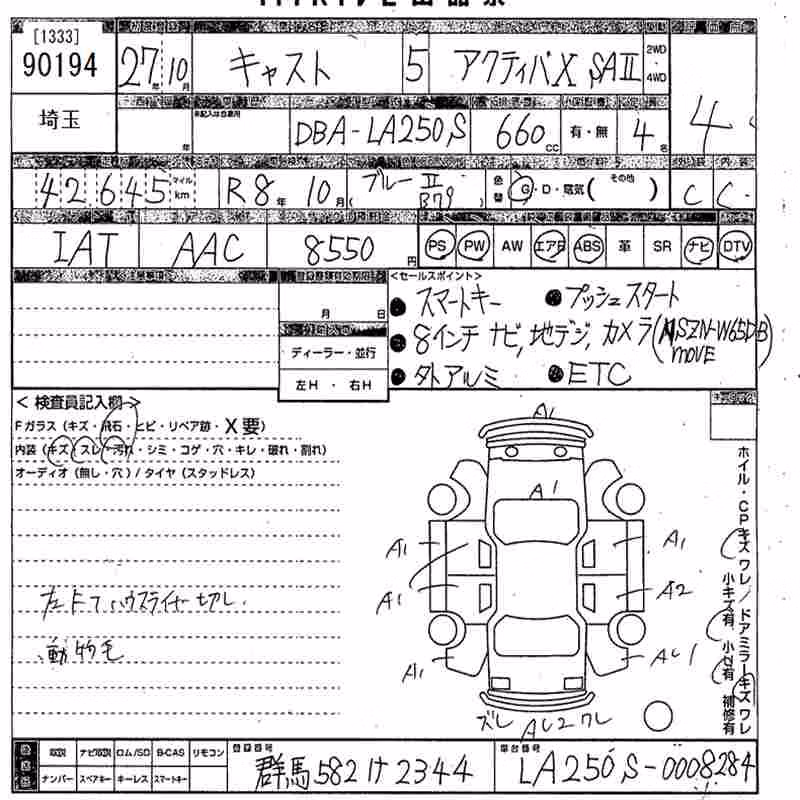 [1333]
90194
27年 10月 キャスト 5 アクティバX SAⅡ 2WD・4WD
埼玉
年 DBA-LA250S 660cc 有・無 4名 4
42,645 マイル km R8年 10月 ブルーⅡ (B79) G・D・電気( その他 ) C C
IAT AAC 8550円 PS PW AW エアB ABS 革 SR ナビ DTV
<セールスポイント>
● スマートキー ● プッシュスタート
月 日
● 8インチ ナビ, 地デジ, カメラ (NSZN-W65DB)
MOVE
ディーラー・並行
● 外アルミ ● ETC
左H ・ 右H
< 検査員記入欄 >
Fガラス (キズ・飛石・ヒビ・リペア跡・X要)
内装 (キズ・スレ・汚れ・シミ・コゲ・穴・キレ・破れ・割れ)
オーディオ (無し・穴) / タイヤ (スタッドレス)
左Fフハウスライナー切レ
動物毛
A1
A1
A1 A1
A1 A2
A1 AU1
ズレ AU2 ワレ
ホイル・CPキズ ワレ/ドアミラーキズ ワレ
小キズ有 小凹有 補修有
ナビ取説 ロム/SD B-CAS リモコン 登録番号
ナンバー スペアキー キーレス スマートキー 群馬 582 け 2344 LA250S-0008284